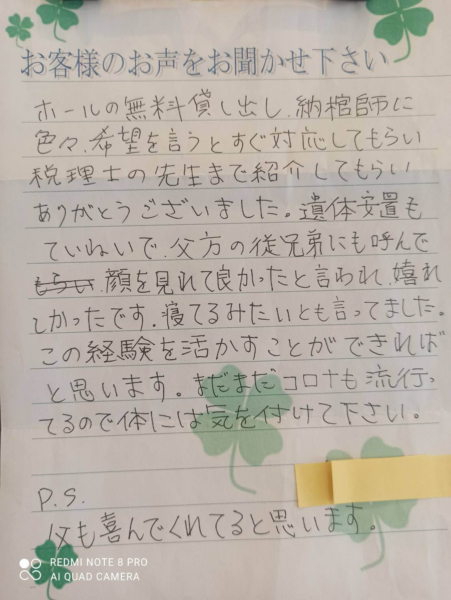 お客様のお声をお聞かせ下さい
ホールの無料貸し出し、納棺師に
色々、希望を言うとすぐ対応してもらい
税理士の先生まで紹介してもらい
ありがとうございました。遺体安置も
ていねいで、父方の従兄弟にも呼んで
もらい、顔を見れて良かったと言われ、嬉れ
しかったです、寝てるみたいとも言ってました。
この経験を活かすことができれば
と思います。まだまだコロナも流行っ
てるので体には気を付けて下さい。
P.S.
父も喜んでくれてると思います。
REDMI NOTE 8 PRO
AI QUAD CAMERA